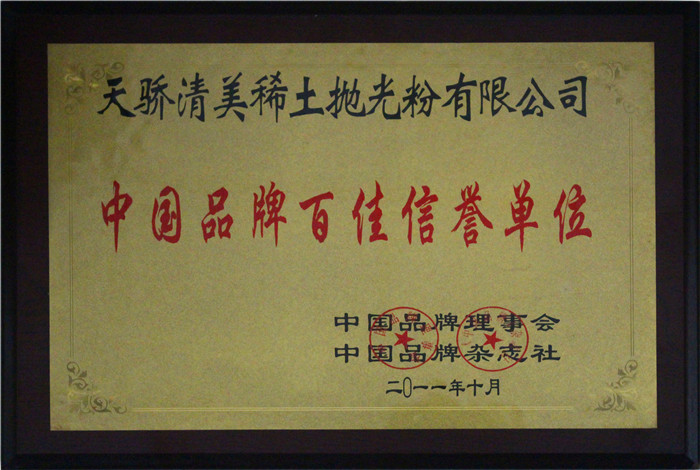 天骄清美稀土抛光粉有限公司
中国品牌百佳信誉单位
中国品牌理事会
中国品牌杂志社
二〇一一年十月